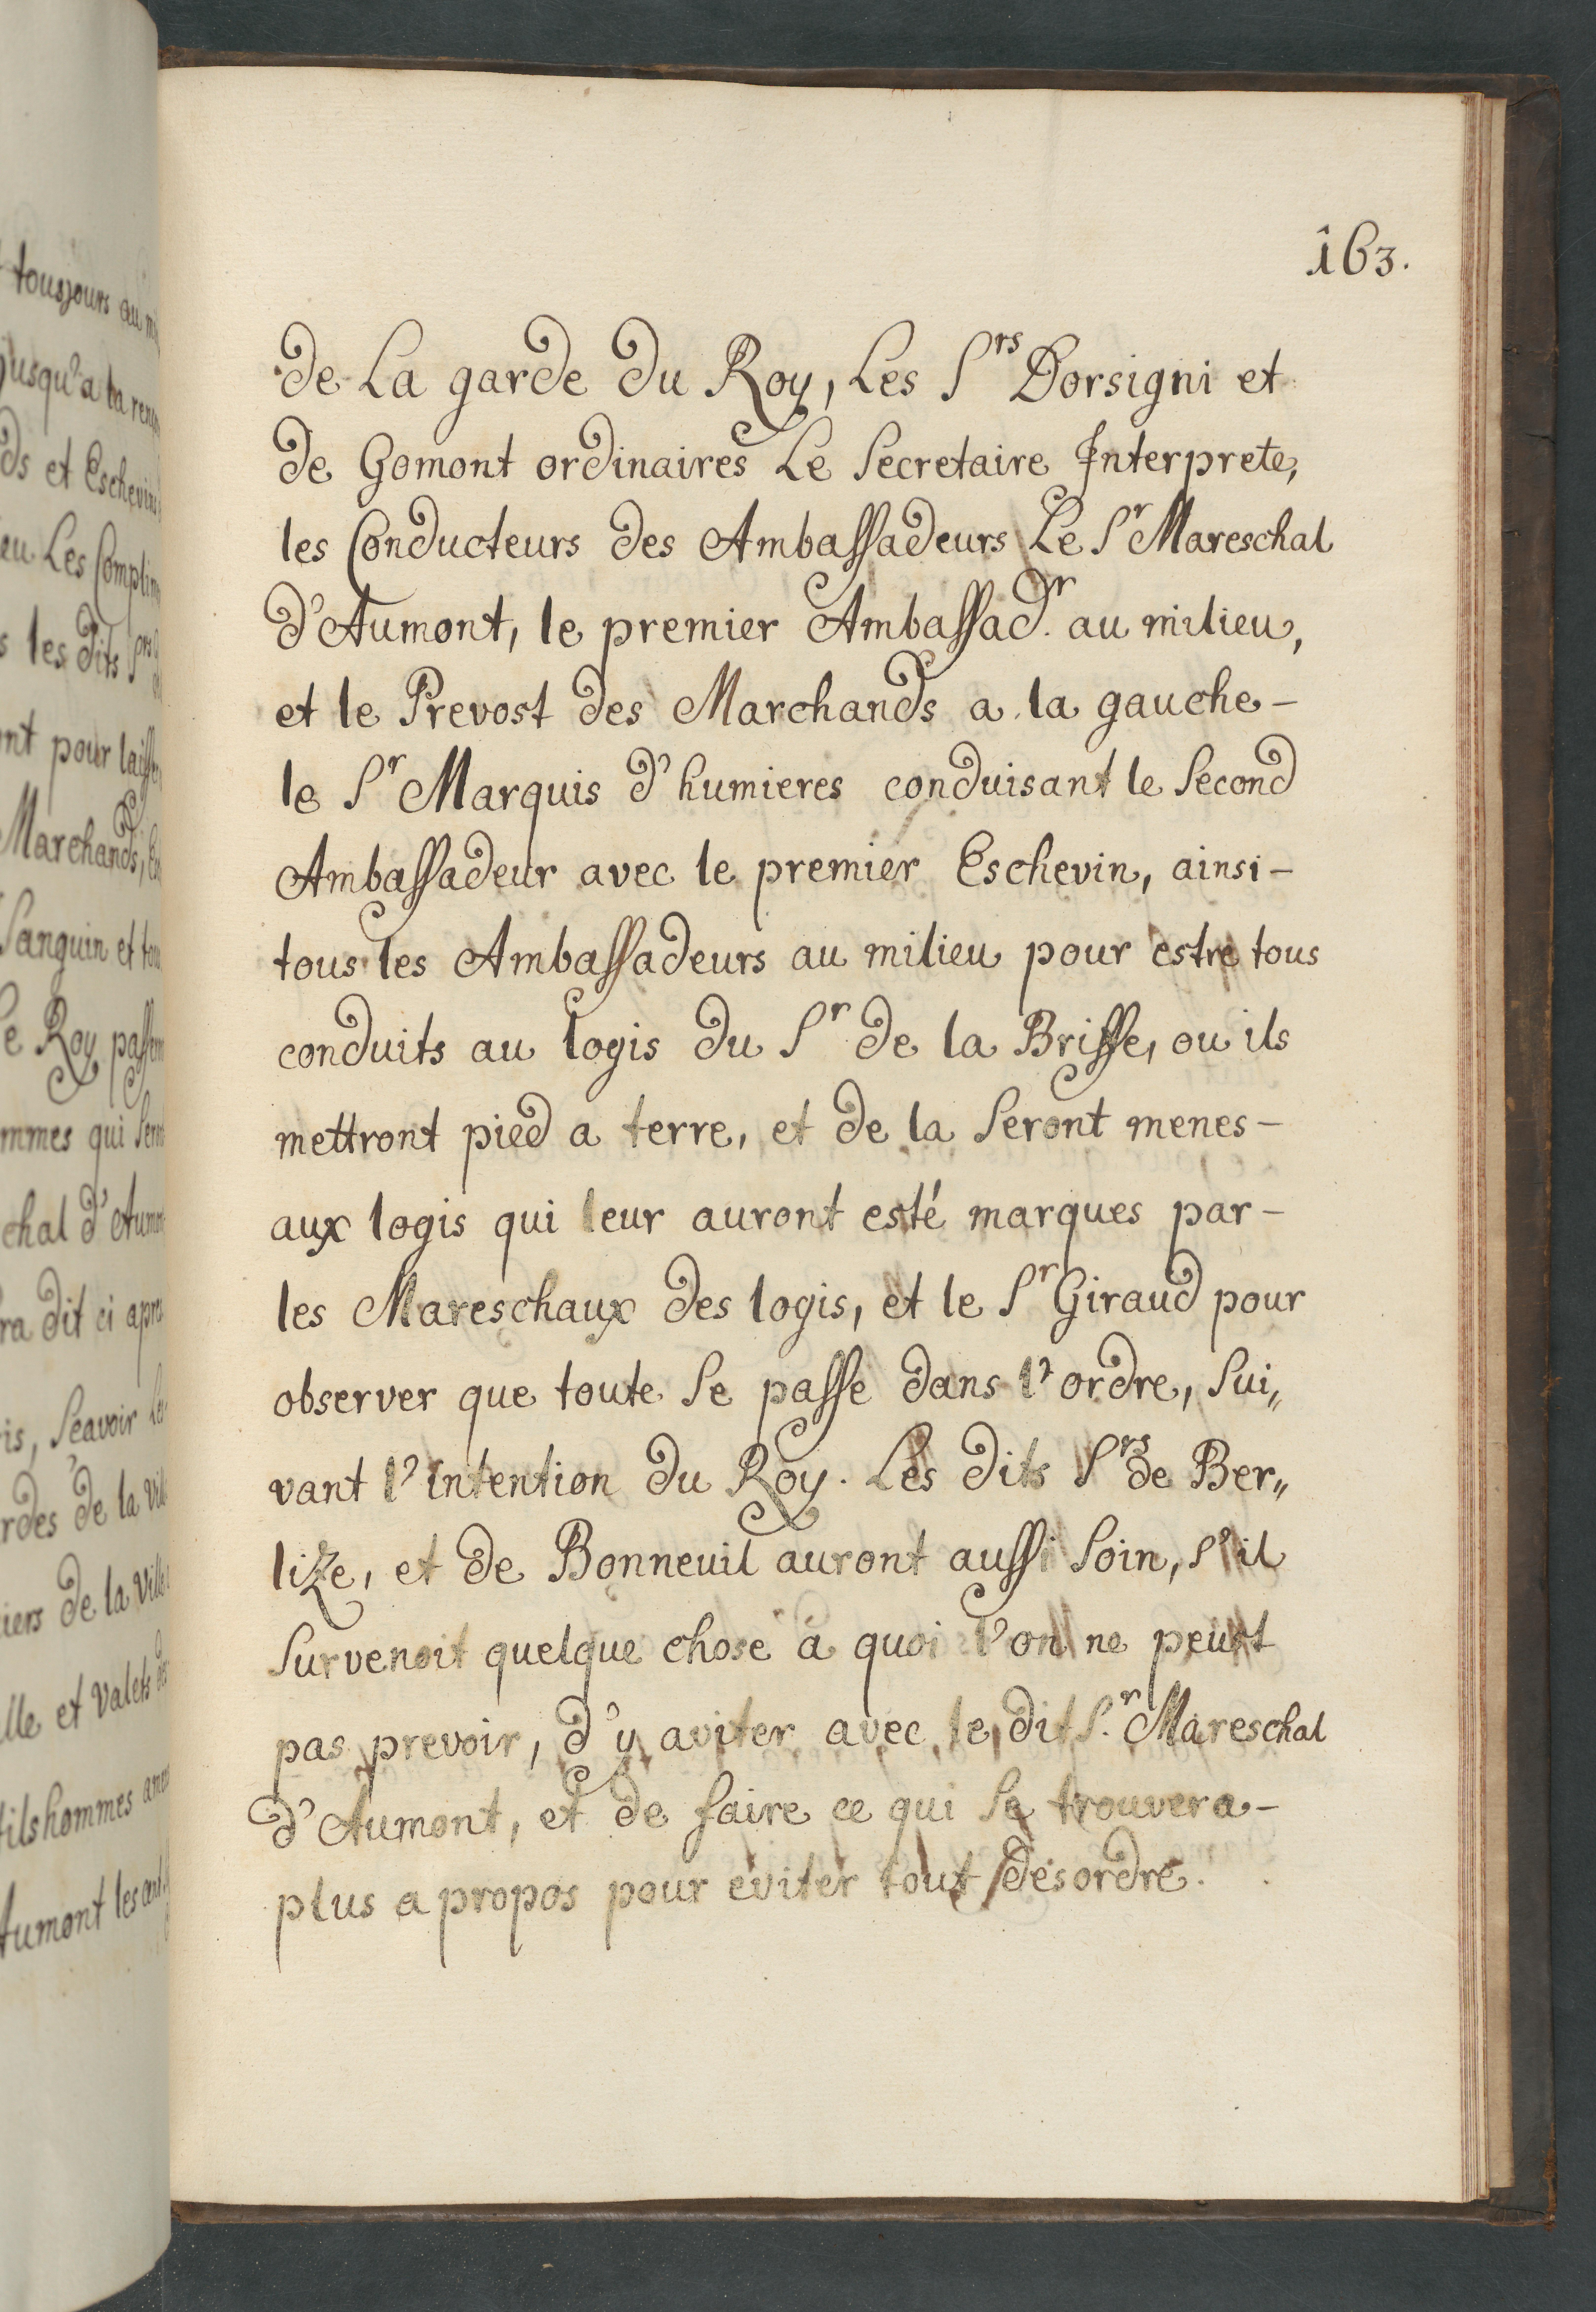 163.
de La garde du Roy, Les Srs Dorsigni et
de Gomont ordinaires Le Secretaire Interprete,
les Conducteurs des Ambassadeurs Le Sr Mareschal
d'Aumont, le premier Ambassad.r au milieu,
et le Prevost des Marchands a la gauche-
le Sr Marquis d'humieres conduisant le Second
Ambassadeur avec le premier Eschevin, ainsi-
tous les Ambassadeurs au milieu pour estre tous
conduits au logis du Sr de la Brisse, ou ils
mettront pied a terre, et de la Seront menes-
aux logis qui leur auront esté marques par-
les Mareschaux des logis, et le Sr Giraud pour
observer que toute Se passe dans l'ordre, Sui„
vant l'intention du Roy. Les dits Srs de Ber„
lize, et de Bonneuil auront aussi Soin, S'il
Survenoit quelque chose a quoi l'on ne peut
pas prevoir, d'y aviter avec le dit S.r Mareschal
d'Aumont, et de faire ce qui Se trouvera-
plus a propos pour eviter tout desordre.
tousjours au
jusqu'a la
ds et Eschevins
eu Les
s les dits Srs
nt pour
Marchands,
Sanguin et
e Roy
mmes qui
chal d'
ra dit ci
is, Sçavoir
rdes de la
iers de la Ville
lle et Valets
tilshommes
Aumont les